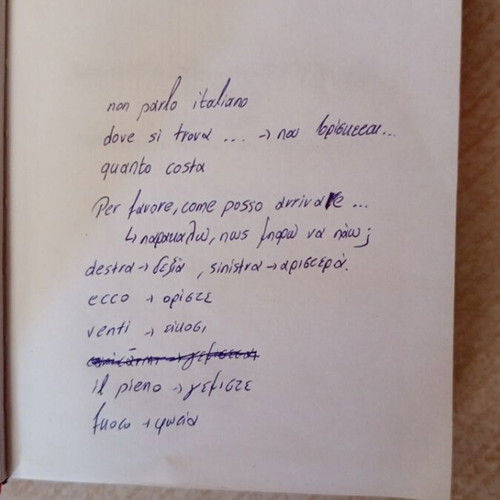 non parlo italiano
dove si trova ... → που βρίσκεται...
quanto costa
Per favore, come posso arrivare ...
↳ παρακαλώ, πως μπορώ να πάω;
destra → δεξιά, sinistra → αριστερά.
ecco → ορίστε
venti → είκοσι
il pieno → γεμίστε
fuoco → φωτιά